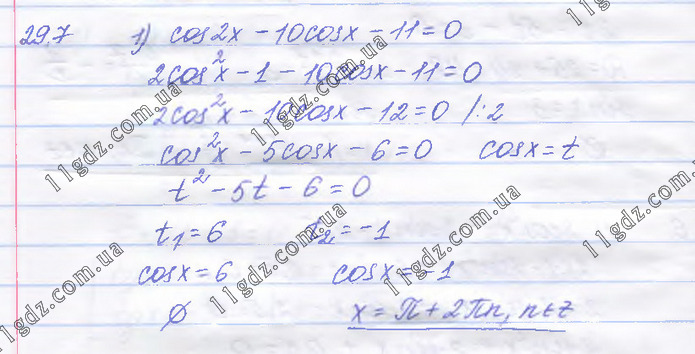 29.7 1) cos2x - 10cosx - 11 = 0
2cos²x - 1 - 10cosx - 11 = 0
2cos²x - 10cosx - 12 = 0 /:2
cos²x - 5cosx - 6 = 0 cosx = t
t² - 5t - 6 = 0
t₁ = 6 t₂ = -1
cosx = 6 cosx = -1
∅ x = π + 2πn, n∈z
11gdz.com.ua
11gdz.com.ua
11gdz.com.ua
11gdz.com.ua
11gdz.com.ua
11gdz.com.ua